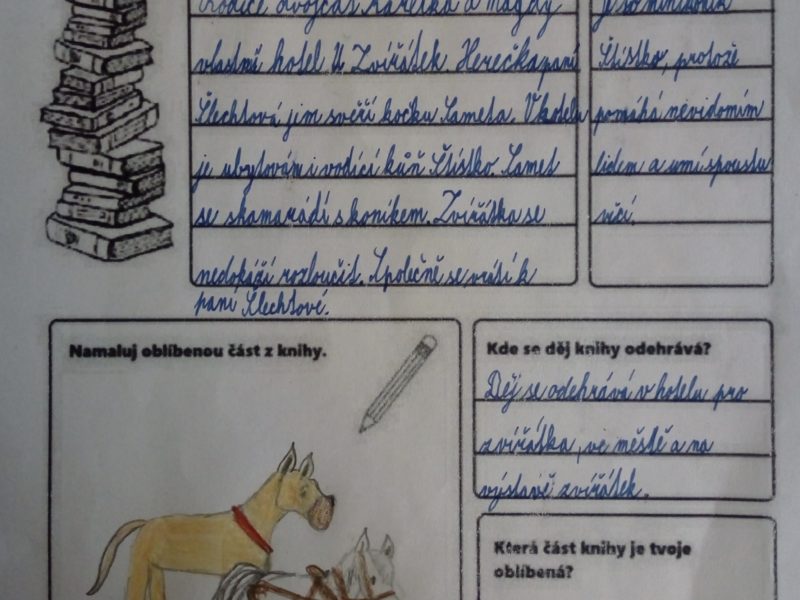 Rodiče dvojčat Karélka a Magdy
vlastně hotel U Zvířátek. Herečka paní
Šlechtová jim svěří kočku Sametu. V hotelu
je ubytovám i vodící kůň Štístko. Samet
se skamarádí s koníkem. Zvířátka se
nedokáží rozloučit. Společně se vrátí k
paní Šlechtové.
je
Štístko, protože
pomáhá nevidomím
lidem a umí spoustu
věcí.
Namaluj oblíbenou část z knihy.
Kde se děj knihy odehrává?
Děj se odehrává v hotelu pro
zvířátka, ve městě a na
výstavě zvířátek.
Která část knihy je tvoje
oblíbená?